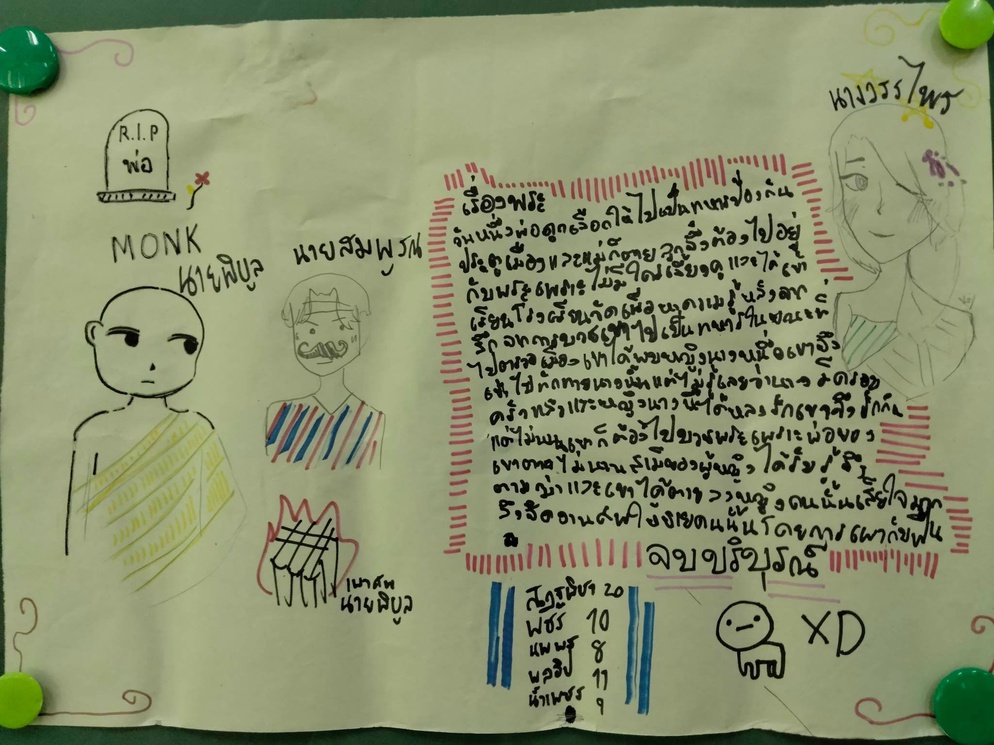 R.I.P
พ่อ
MONK
นายพิบูล
นายสมพูรณ์
นางวรรไพร
เรื่องพระ
วันหนึ่งพ่อถูกเลือกให้ไปเป็นทหารป้องกัน
ประตูเมืองและแม่ก็ตาย ลูกจึงต้องไปอยู่
กับพระเพราะไม่มีใครเลี้ยงดู และได้เข้า
เรียนโรงเรียนวัดเพื่อหาความรู้หลังจาก
สึกจากการบวชเขาไปเป็นทหารในขณะที่
ไปตรวจเมืองเขาได้พบหญิงนางหนึ่งเขาจึง
เข้าไปทักทายนางนั้นแต่ไม่รู้เลยว่านางมีครอบ
ครัวแล้วและหญิงนางนี้ได้หลงรักเขาจึงรักกัน
แต่ไม่นานเขาก็ต้องไปบวชพระเพราะพ่อของ
เขาตายไม่นานสามีของผู้หญิงได้รับรู้จึง
ตามฆ่าและเขาได้ตายลงหญิงคนนั้นเสียใจมาก
จึงจัดงานศพให้ชายคนนั้นโดยการเผากับฟืน
จบบริบูรณ์
เผาศพ
นายพิบูล
20
พชร 10
นพพร 8
11
น้ำเพชร 9
XD